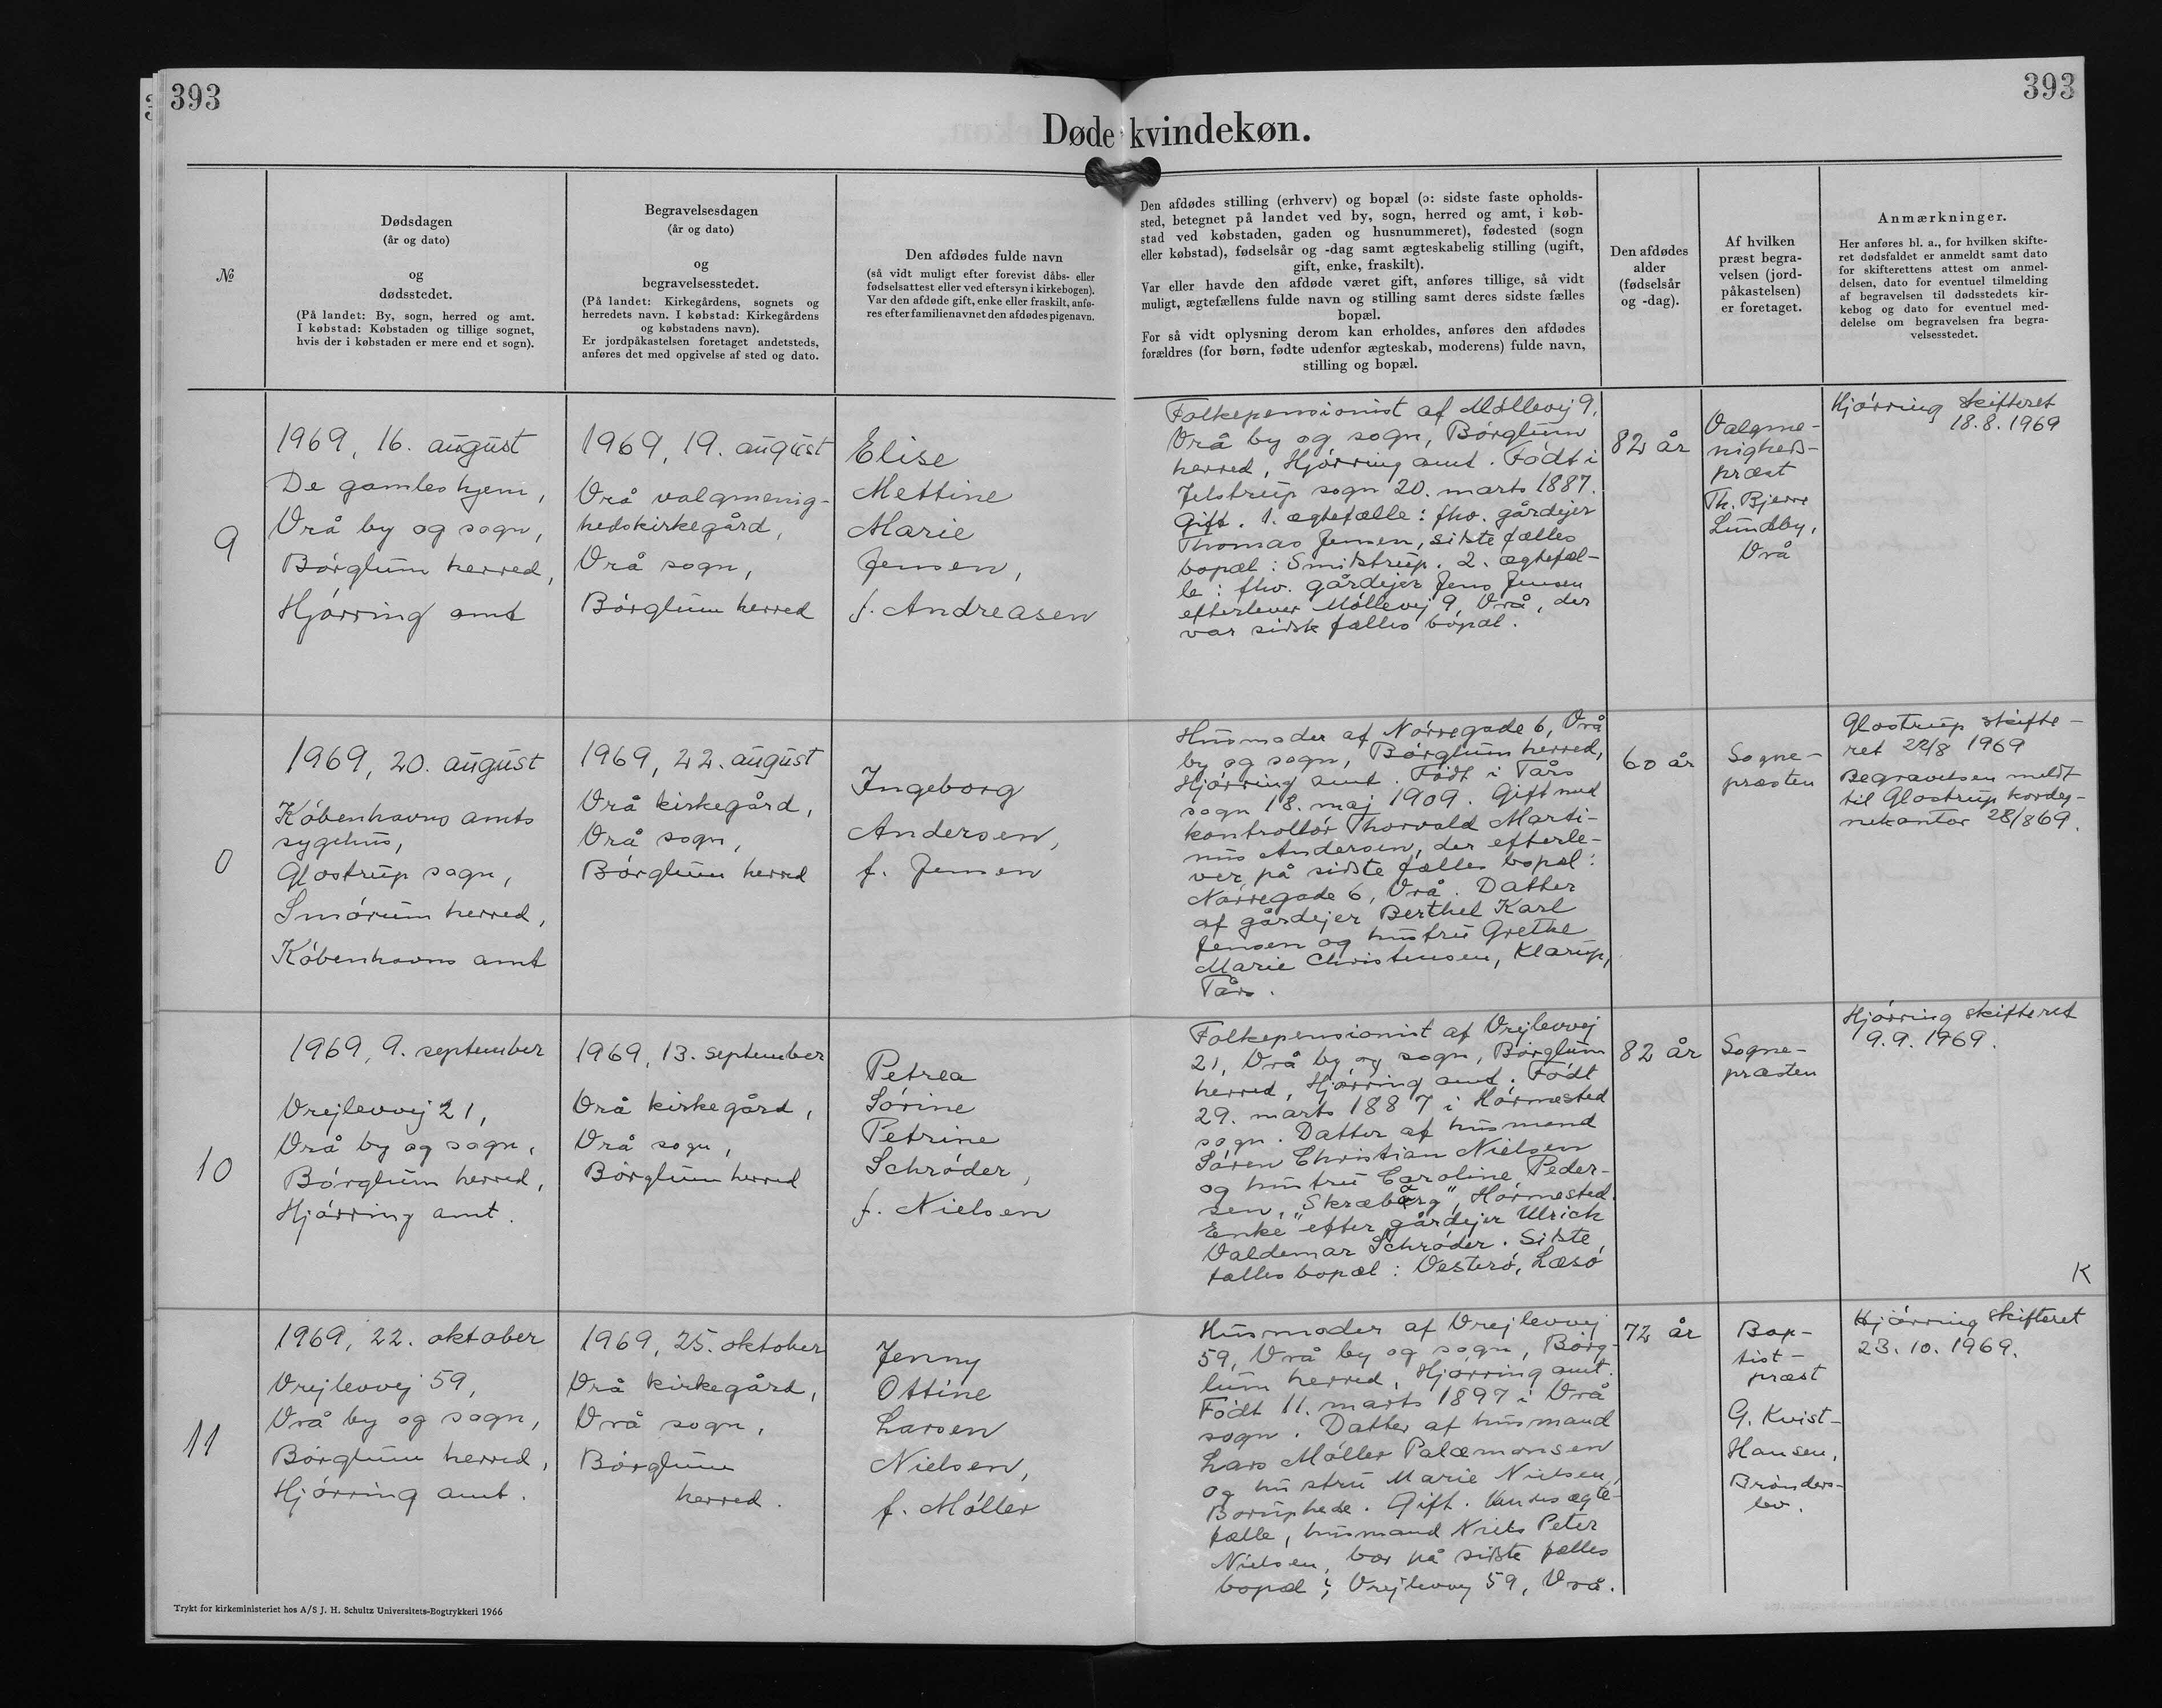 393
393
Døde kvindekøn.
№
Dødsdagen
(år og dato)
og
dødsstedet.
(På landet: By, sogn, herred og amt.
I købstad: Købstaden og tillige sognet,
hvis der i købstaden er mere end et sogn).
Begravelsesdagen
(år og dato)
og
begravelsesstedet.
(På landet: Kirkegårdens, sognets og
herredets navn. I købstad: Kirkegårdens
og købstadens navn).
Er jordpåkastelsen foretaget andetsteds,
anføres det med opgivelse af sted og dato.
Den afdødes fulde navn
(så vidt muligt efter forevist dåbs- eller
fødselsattest eller ved eftersyn i kirkebogen).
Var den afdøde gift, enke eller fraskilt, anfø-
res efter familienavnet den afdødes pigenavn.
Den afdødes stilling (erhverv) og bopæl (ɔ: sidste faste opholds-
sted, betegnet på landet ved by, sogn, herred og amt, i køb-
stad ved købstaden, gaden og husnummeret), fødested (sogn
eller købstad), fødselsår og -dag samt ægteskabelig stilling (ugift,
gift, enke, fraskilt).
Var eller havde den afdøde været gift, anføres tillige, så vidt
muligt, ægtefællens fulde navn og stilling samt deres sidste fælles
bopæl.
For så vidt oplysning derom kan erholdes, anføres den afdødes
forældres (for børn, fødte udenfor ægteskab, moderens) fulde navn,
stilling og bopæl.
Den afdødes
alder
(fødselsår
og -dag).
Af hvilken
præst begra-
velsen (jord-
påkastelsen)
er foretaget.
Anmærkninger.
Her anføres bl. a., for hvilken skifte-
ret dødsfaldet er anmeldt samt dato
for skifterettens attest om anmel-
delsen, dato for eventuel tilmelding
af begravelsen til dødsstedets kir-
kebog og dato for eventuel med-
delelse om begravelsen fra begra-
velsesstedet.
9
1969, 16. august
De gamles hjem,
Vrå by og sogn,
Børglum herred,
Hjørring amt
1969, 19. august
Vrå valgmenig-
hedskirkegård,
Vrå sogn,
Børglum herred
Elise
Mettine
Marie
Jensen,
f. Andreasen
Folkepensionist af Møllevej 9,
Vrå by og sogn, Børglum
herred, Hjørring amt. Født i
Jelstrup sogn 20. marts 1887.
Gift. 1. ægtefælle: fhv. gårdejer
Thomas Jensen, sidste fælles
bopæl: Smidstrup. 2. ægtefæl-
le: fhv. gårdejer Jens Jensen
efterlever Møllevej 9, Vrå, der
var sidste fælles bopæl.
82 år
Valgme-
nigheds-
præst
Th. Bjerre
Lundby,
Vrå
Hjørring skifteret
18.8.1969
0
1969, 20. august
Københavns amts
sygehus,
Glostrup sogn,
Smørum herred,
Københavns amt
1969, 22. august
Vrå kirkegård,
Vrå sogn,
Børglum herred
Ingeborg
Andersen,
f. Jensen
Husmoder af Nørregade 6, Vrå
by og sogn, Børglum herred,
Hjørring amt. Født i Tårs
sogn 18. maj 1909. Gift med
kontrollør Thorvald Marti-
nus Andersen, der efterle-
ver på sidste fælles bopæl:
Nørregade 6, Vrå. Datter
af gårdejer Berthel Karl
Jensen og hustru Grethe
Marie Christensen, Klarup,
Tårs.
60 år
Sogne-
præsten
Glostrup skifte-
ret 22/8 1969
Begravelsen meldt
til Glostrup kordeg-
nekontor 28/8 69.
10
1969, 9. september
Vrejlevvej 21,
Vrå by og sogn,
Børglum herred,
Hjørring amt.
1969, 13. september
Vrå kirkegård,
Vrå sogn,
Børglum herred
Petrea
Sørine
Petrine
Schrøder,
f. Nielsen
Folkepensionist af Vrejlevvej
21, Vrå by og sogn, Børglum
herred, Hjørring amt. Født
29. marts 1887 i Hørmested
sogn. Datter af husmand
Søren Christian Nielsen
og hustru Caroline Peder-
sen, "Skræbårg", Hørmested.
Enke efter gårdejer Ulrich
Valdemar Schrøder. Sidste
fælles bopæl: Vesterø, Læsø
82 år
Sogne-
præsten
Hjørring skifteret
9.9.1969.
K
11
1969, 22. oktober
Vrejlevvej 59,
Vrå by og sogn,
Børglum herred,
Hjørring amt.
1969, 25. oktober
Vrå kirkegård,
Vrå sogn,
Børglum
herred.
Jenny
Ottine
Larsen
Nielsen,
f. Møller
Husmoder af Vrejlevvej
59, Vrå by og sogn, Børg-
lum herred, Hjørring amt.
Født 11. marts 1897 i Vrå
sogn. Datter af husmand
Lars Møller Palæmonsen
og hustru Marie Nielsen,
Boruphede. Gift. Hendes ægte-
fælle, husmand Niels Peter
Nielsen, bor på sidste fælles
bopæl; Vrejlevvej 59, Vrå.
72 år
Bap-
tist-
præst
G. Kvist-
Hansen,
Brønders-
lev.
Hjørring skifteret
23.10.1969.
Trykt for kirkeministeriet hos A/S J. H. Schultz Universitets-Bogtrykkeri 1966